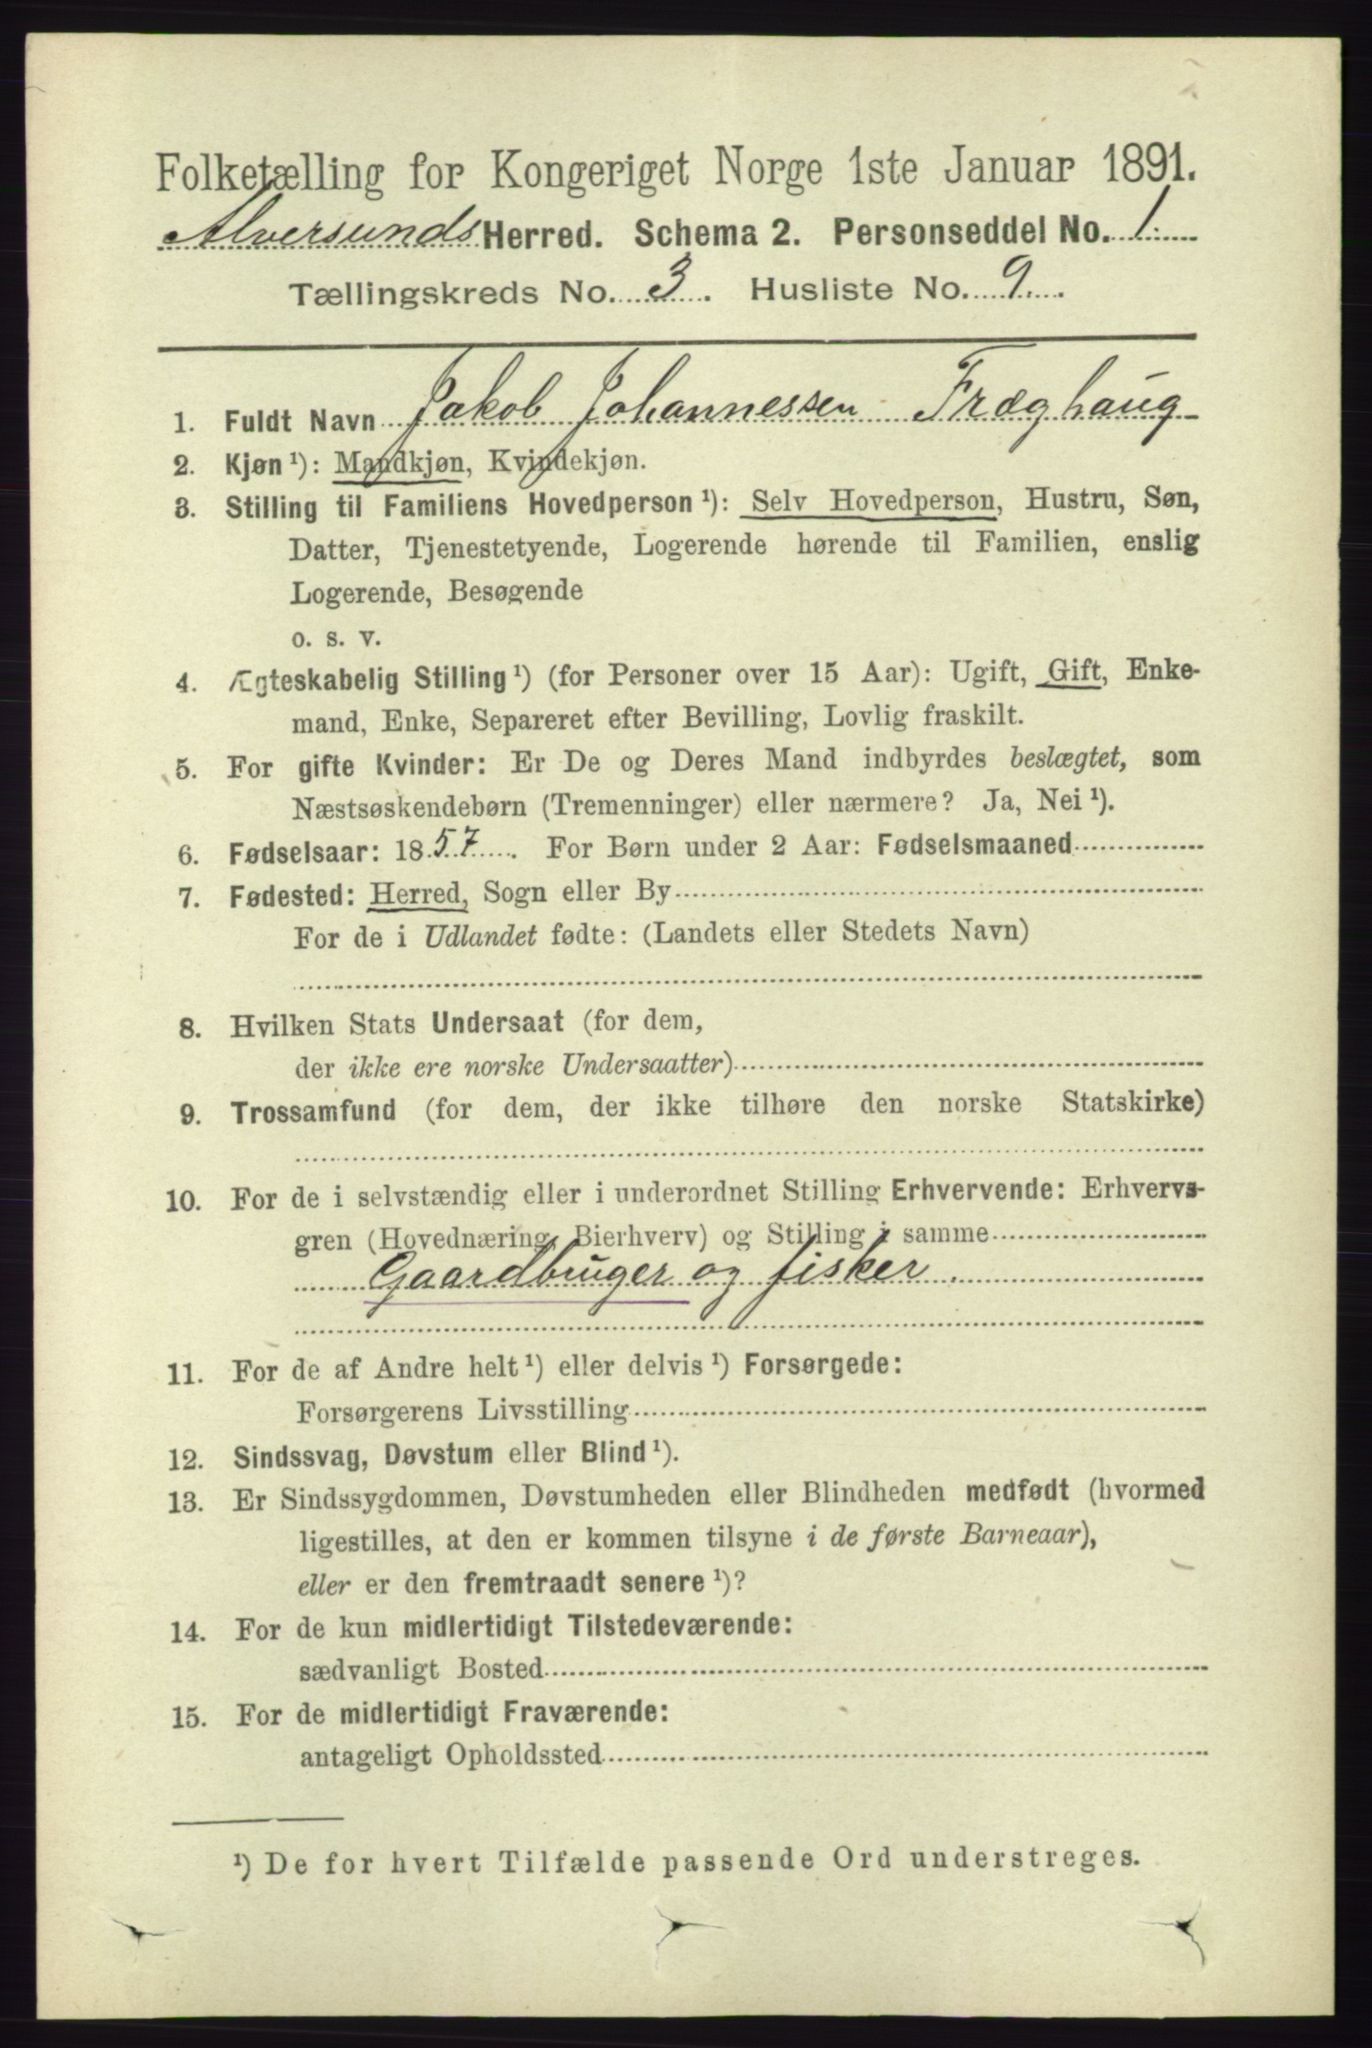 Folketælling for Kongeriget Norge 1ste Januar 1891.
Alversunds Herred. Schema 2. Personseddel No. 1.
Tællingskreds No. 3. Husliste No. 9.
1. Fuldt Navn Jakob Johannessen Fræghaug
2. Kjøn ¹): Mandkjøn, Kvindekjøn.
3. Stilling til Familiens Hovedperson ¹): Selv Hovedperson, Hustru, Søn,
Datter, Tjenestetyende, Logerende hørende til Familien, enslig
Logerende, Besøgende
o. s. v.
4. Ægteskabelig Stilling ¹) (for Personer over 15 Aar): Ugift, Gift, Enke-
mand, Enke, Separeret efter Bevilling, Lovlig fraskilt.
5. For gifte Kvinder: Er De og Deres Mand indbyrdes beslægtet, som
Næstsøskendebørn (Tremenninger) eller nærmere? Ja, Nei ¹).
6. Fødselsaar: 1857. For Børn under 2 Aar: Fødselsmaaned
7. Fødested: Herred, Sogn eller By
For de i Udlandet fødte: (Landets eller Stedets Navn)
8. Hvilken Stats Undersaat (for dem,
der ikke ere norske Undersaatter)
9. Trossamfund (for dem, der ikke tilhøre den norske Statskirke)
10. For de i selvstændig eller i underordnet Stilling Erhvervende: Erhvervs-
gren (Hovednæring, Bierhverv) og Stilling i samme
Gaardbruger og fisker.
11. For de af Andre helt ¹) eller delvis ¹) Forsørgede:
Forsørgerens Livsstilling
12. Sindssvag, Døvstum eller Blind ¹).
13. Er Sindssygdommen, Døvstumheden eller Blindheden medfødt (hvormed
ligestilles, at den er kommen tilsyne i de første Barneaar),
eller er den fremtraadt senere ¹)?
14. For de kun midlertidigt Tilstedeværende:
sædvanligt Bosted
15. For de midlertidigt Fraværende:
antageligt Opholdssted
¹) De for hvert Tilfælde passende Ord understreges.